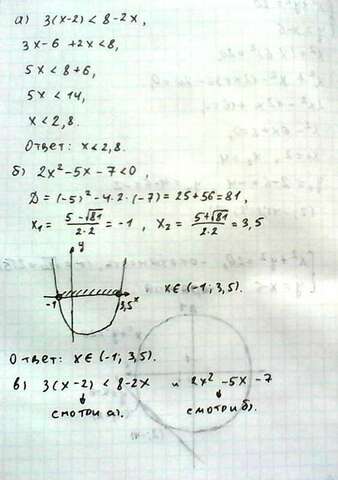 а) 3(x-2) < 8-2x,
3x-6 +2x<8,
5x < 8+6,
5x < 14,
x < 2,8.
Ответ: x < 2,8.
б) 2x² -5x -7<0,
D = (-5)² -4·2·(-7) = 25+56 = 81,
x₁ = (5-√81)/(2·2) = -1, x₂ = (5+√81)/(2·2) = 3,5
y
-1 3,5 x
x∈(-1; 3,5).
Ответ: x∈(-1; 3,5).
в) 3(x-2) < 8-2x и 2x² -5x -7
смотри а). смотри б).